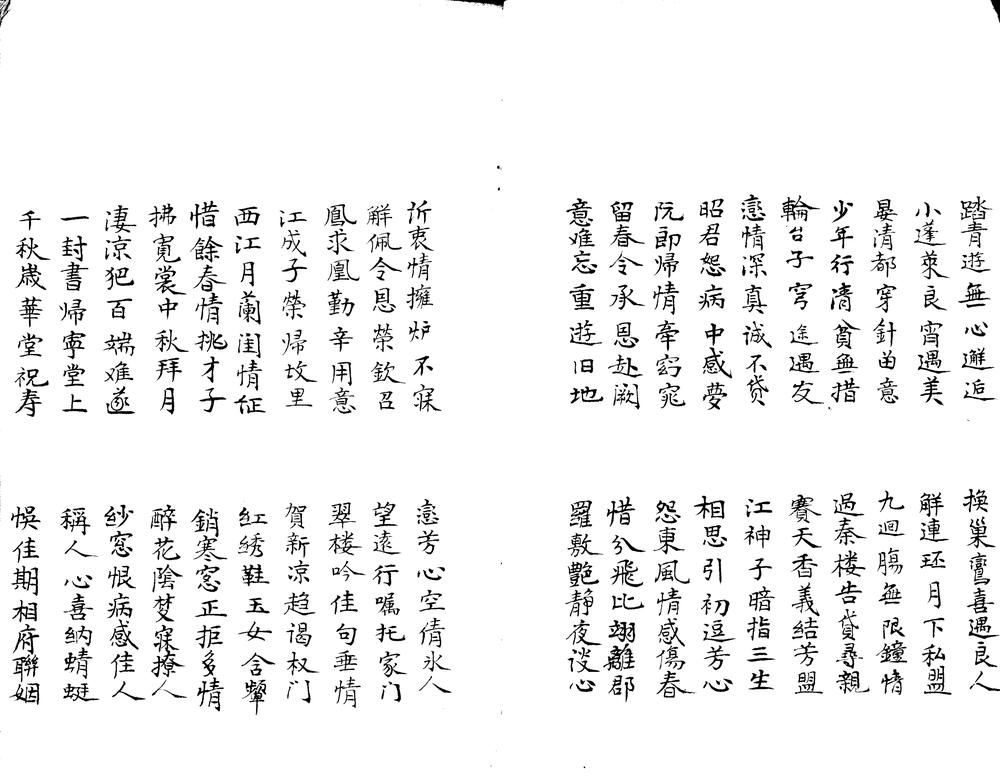 踏青遊無心邂逅
換巢鸞喜遇良人
小蓬萊良宵遇美
解連环月下私盟
晏清都穿針曲意
九迴腸無限鐘情
少年行清貧無措
過秦楼告貸尋親
輪台子穷途遇友
賽天香義結芳盟
戀情深真诚不貸
江神子暗指三生
昭君怨病中感夢
相思引初逗芳心
阮郎帰情牽窈窕
怨東風情感傷春
留春令承恩赴阙
惜分飛比翊離郡
意难忘重遊旧地
羅敷艷静夜谈心
訴衷情擁炉不寐
戀芳心空倩氷人
解佩令恩榮欽召
望遠行嘱托家门
鳳求凰勤辛用意
翠楼吟佳句垂情
江成子榮帰故里
賀新凉趋谒权门
西江月蘭闺情怔
红綉鞋玉女含颦
惜餘春情挑才子
銷寒窓正拒多情
拂霓裳中秋拜月
醉花陰梦寐撩人
淒涼犯百端难遂
纱窓恨病感佳人
一封書帰寧堂上
稱人心喜纳蜻蜓
千秋歲華堂祝寿
悞佳期相府聯姻